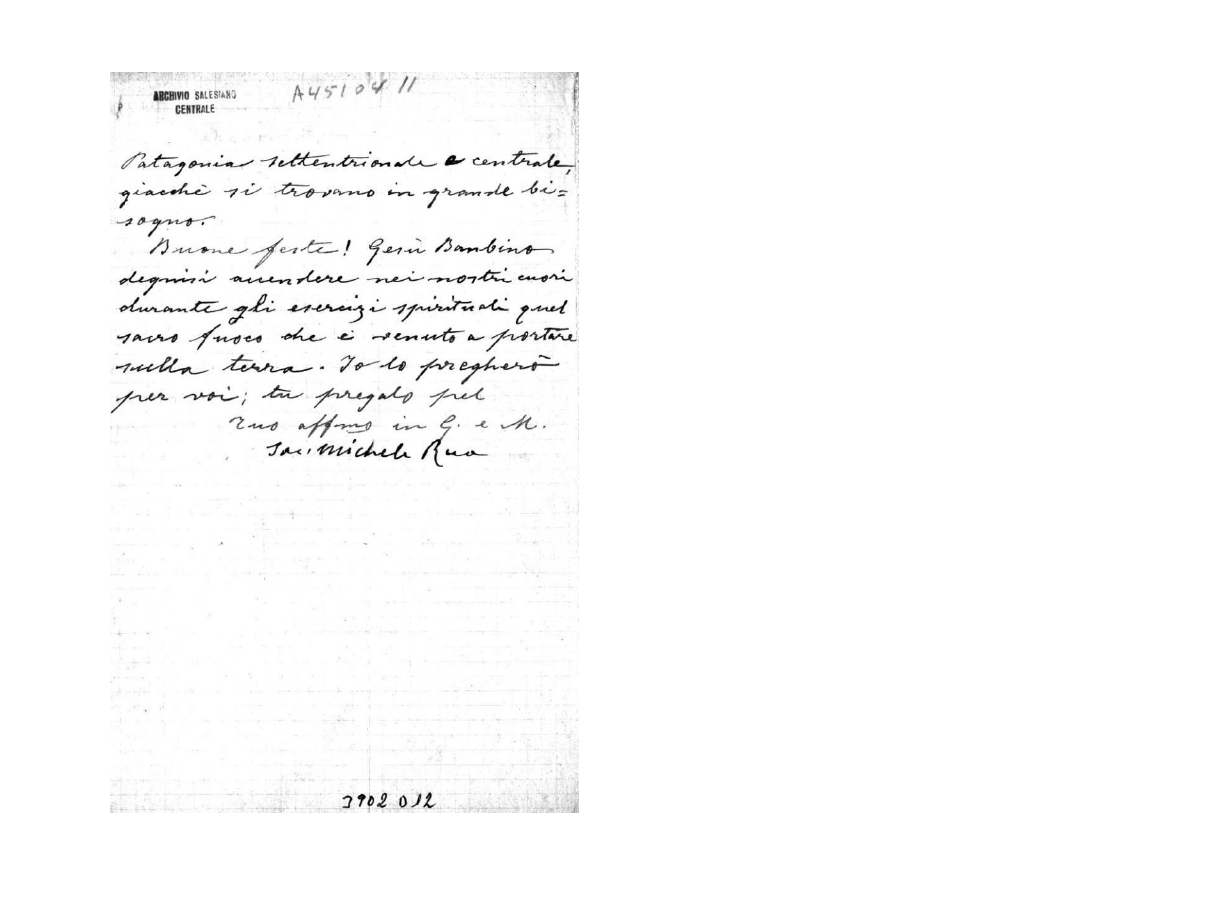 ARCHIVIO SALESIANO
CENTRALE
A4510411
Patagonia settentrionale e centrale,
giacchè si trovano in grande bi=
sogno.
Buone feste! Gesù Bambino
degnisi accendere nei nostri cuori
durante gli esercizi spirituali quel
sacro fuoco che è venuto a portare
sulla terra. Io lo pregherò
per voi; tu pregalo pel
Tuo affmo in G. e M.
Sac. Michele Rua
3902 012